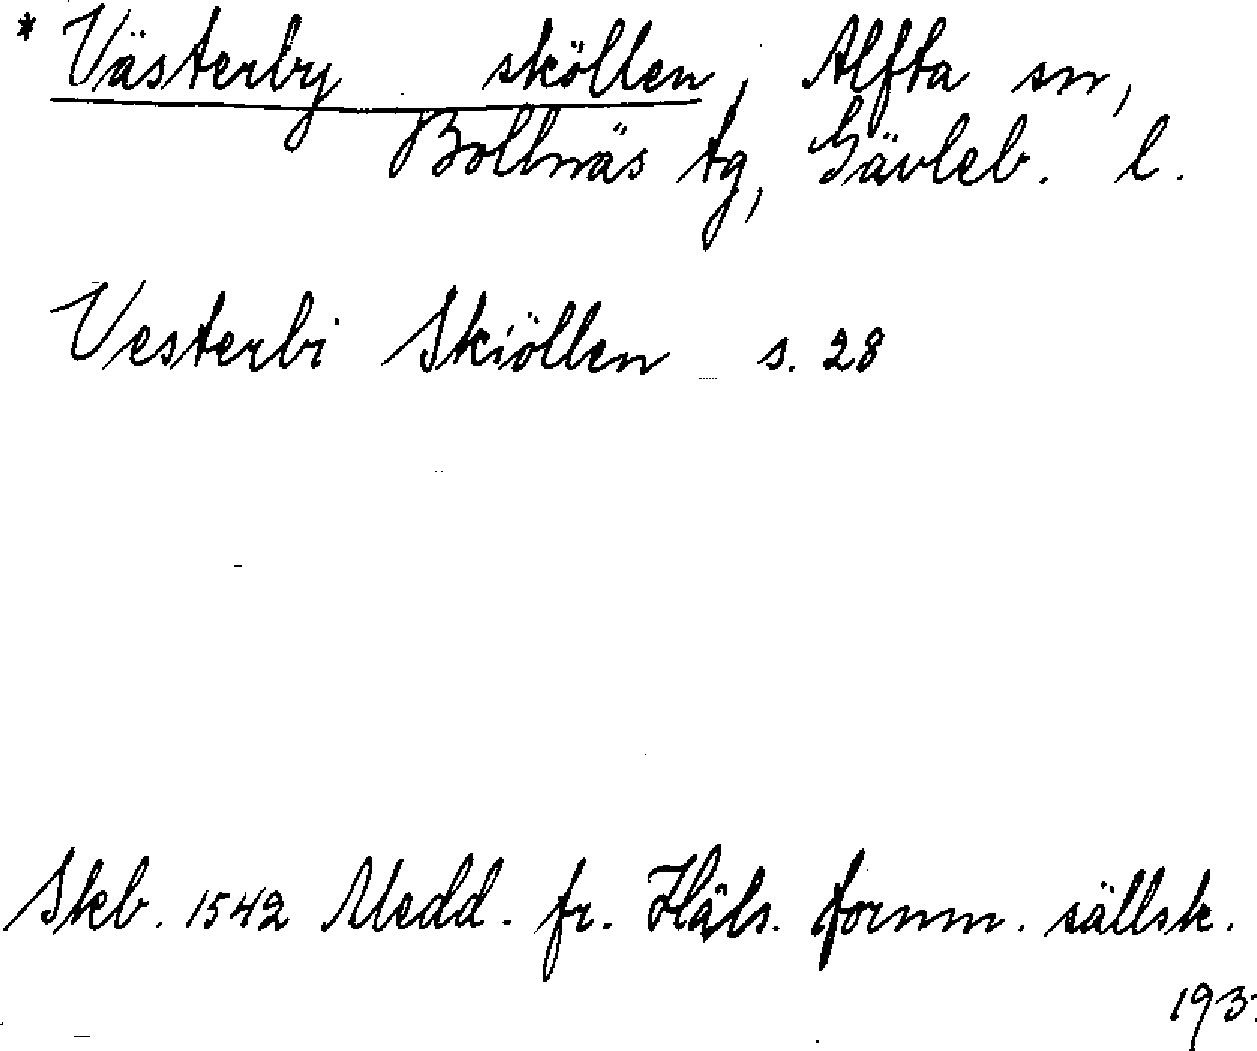 * Västerby sköllen, Alfta sn,
Bollnäs tg, Gävleb. l.
Vesterbi Skiöllen s. 28
Skb. 1542 Medd. fr. Häls. fornm. sällsk.